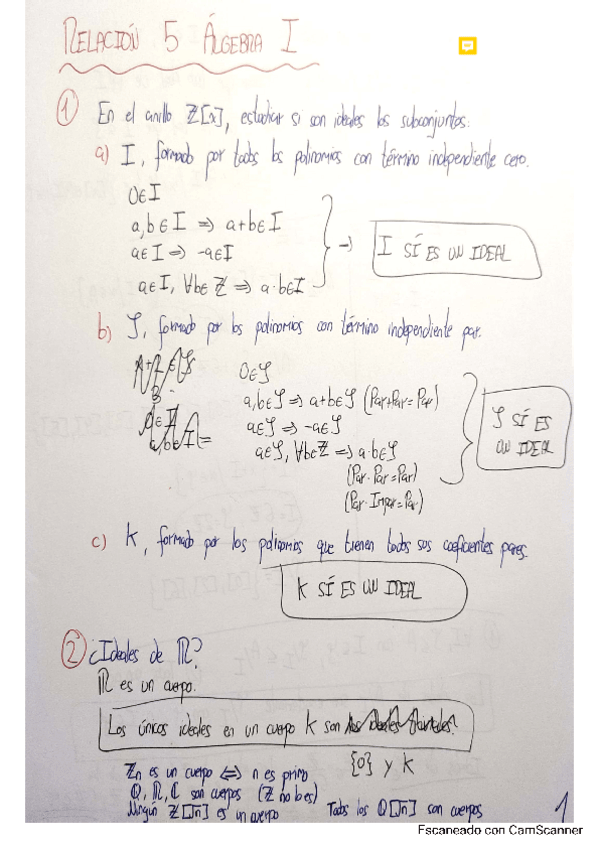 RELACIÓN 5 ÁLGEBRA I
① En el anillo Z[x], estudiar si son ideales los subconjuntos:
a) I, formado por todos los polinomios con término independiente cero.
0∈I
a,b∈I ⇒ a+b∈I
a∈I ⇒ -a∈I
a∈I, ∀b∈Z ⇒ a·b∈I
→ I SÍ ES UN IDEAL
b) J, formado por los polinomios con término independiente par.
0∈J
a,b∈J ⇒ a+b∈J (Par+Par=Par)
a∈J ⇒ -a∈J
a∈J, ∀b∈Z ⇒ a·b∈J
(Par·Par=Par)
(Par·Impar=Par)
J SÍ ES
UN IDEAL
c) K, formado por los polinomios que tienen todos sus coeficientes pares.
K SÍ ES UN IDEAL
② ¿Ideales de R?
R es un cuerpo.
Los únicos ideales en un cuerpo K son
{0} y K
Zn es un cuerpo ⇔ n es primo
Q, R, C son cuerpos (Z no lo es)
Ningún Z[√n] es un cuerpo Todos los Q[√n] son cuerpos
1
Escaneado con CamScanner